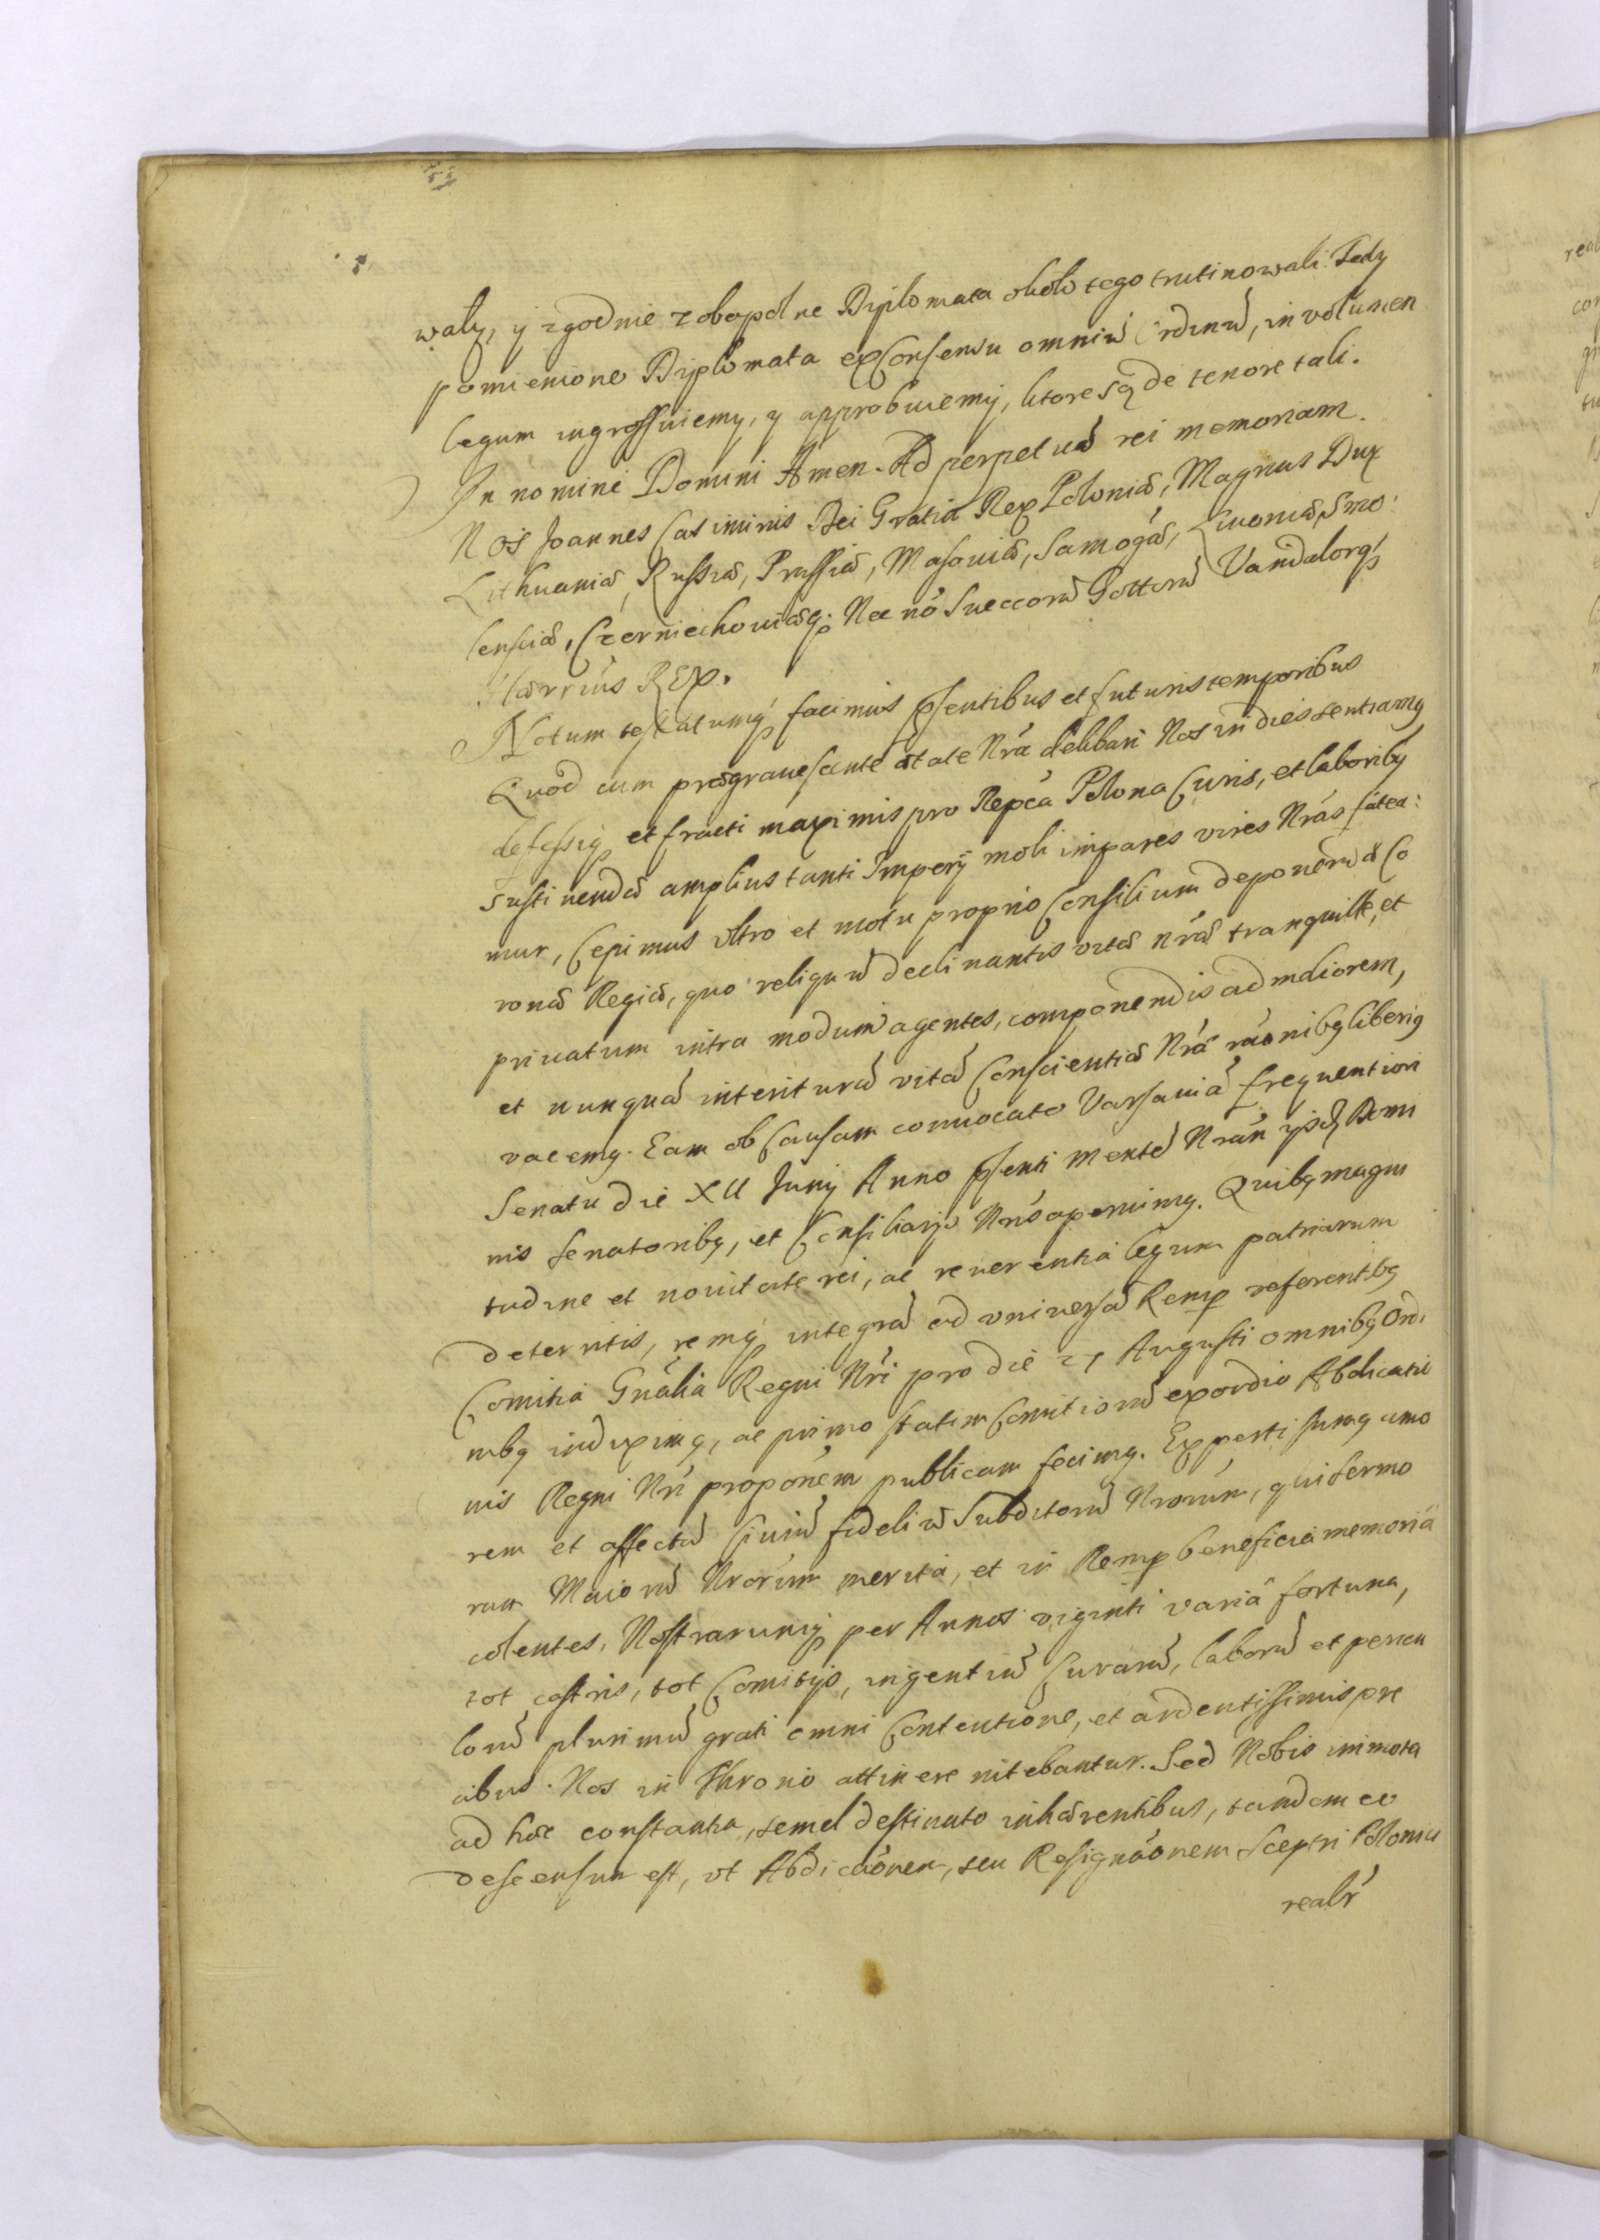 wały, y zgodnie z obopolne Diplomata około tego trutinowali. Tedy
pomienione Diplomata ex Consensu omniũ Ordinũ, in volumen
legum ingrossuiemy, y approbuiemy, ktore sq̨ de tenore tali.
In nomine Domini Amen. Ad perpetuã rei memoriam.
Nos Joannes Casimirus Dei Gratia Rex Poloniæ, Magnus Dux
Lithuaniæ, Russiæ, Prussiæ, Masouiæ, Samogæ, Liuoniæ, Smo:
lensciæ, Czerniechouiæq;. Nec nõ Sueccorũ Gottorũ Vandalorq;
Hærrius REX.
Notum testatumq; facimus pſentibus et futuris temporibus
Quod cum prægrauescente ætate Nrã delibari Nos in dies sentiamq
defessiq et fracti maximis pro Repcã Polona Curis, et laboribq
sustinendæ amplius tanti Imperij moli impares vires Nrãs fatea:
mur, Cepimus vltro et motu proprio Consilium deponẽdæ Co
ronæ Regiæ, quo reliquũ declinantis vitæ nræ tranquille, et
priuatum intra modum agentes, componendis ad meliorem,
et nunquã interiturã vitã Conscientiæ Nrã rãonibq liberiq
vacemq. Eam ob Causam conuocato Varsauiã frequentiori
Senatu die XII Junij Anno pſenti mentẽ Nrãm ipsis Domi
nis Senatoribq, et Consiliarijs Nrõs aperuimq. Quibq magni
tudine et nouitate rei, ac reuerentia legum patriarum
deterritis, remq; integrã ad vniuersã Remp referentibq
Comitia Gnãlia Regni Nrĩ pro die 27 Augusti omnibq Ordi
nibq indiximq, ac primo statim Comitiorũ exordio Abdicatio
nis Regni Nrĩ proponẽm publicam fecimq. Experti sumq amo
rem et affectũ Ciuiũ fideliũ Subditorũ Nrorum, qui Sermo
rum Maiorũ Nrorum merita, et in Remp beneficia memoriã
colentes, Nostrarumq; per Annos viginti variã fortuna,
tot castris, tot Comitijs, ingentiũ Curarũ, laborũ et pericu
lorũ plurimũ grati omni Contentione, et ardentissimis pre
cibus. Nos in throno attinere nitebantur. Sed Nobis immota
ad hæc constantia, semel destinato inhærentibus, tandem eo
descensum est, vt Abdicãonem, seu Resignãonem Sceptri Polonici
realr̃